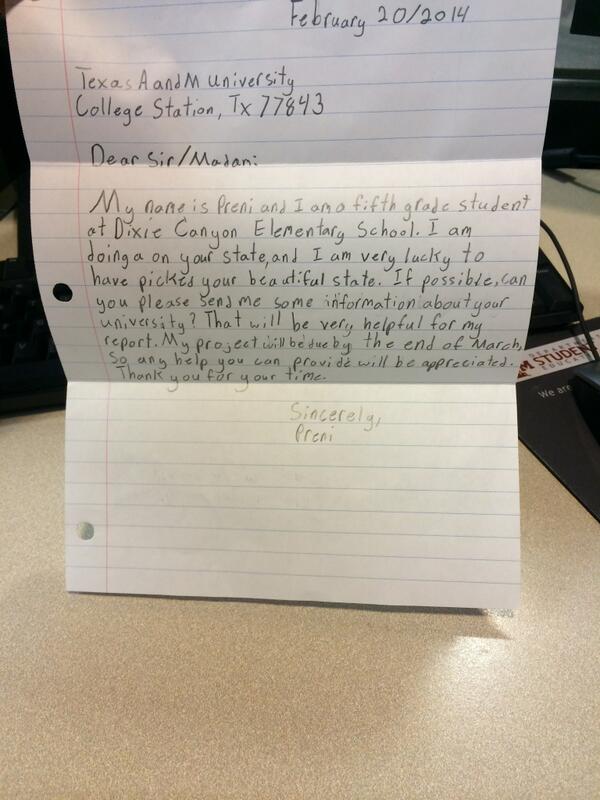 February 20/2014
Texas A and M University
College Station, Tx 77843
Dear Sir/Madan:
My name is Preni and I am a fifth grade student
at Dixie Canyon Elementary School. I am
doing a on your state, and I am very lucky to
have picked your beautiful state. If possible, can
you please send me some information about your
university? That will be very helpful for my
report. My project will be due by the end of March,
so any help you can provide will be appreciated.
Thank you for your time.
Sincerely,
Preni
STUDENT
We are